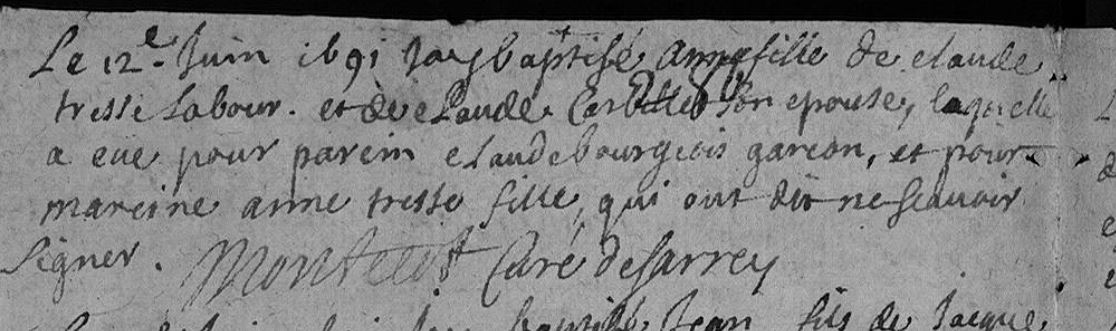 Le 12e. Juin 1691 J'ay baptisé anne fille de claude
tresse Labour. et de claude son epouse, laquelle
a eüe pour parein claude bourgeois garcon, et pour
mareine anne tresse fille, qui ont dit ne scauoir
signer. Curé de sarrey
baptisé Jean fils de Jacque